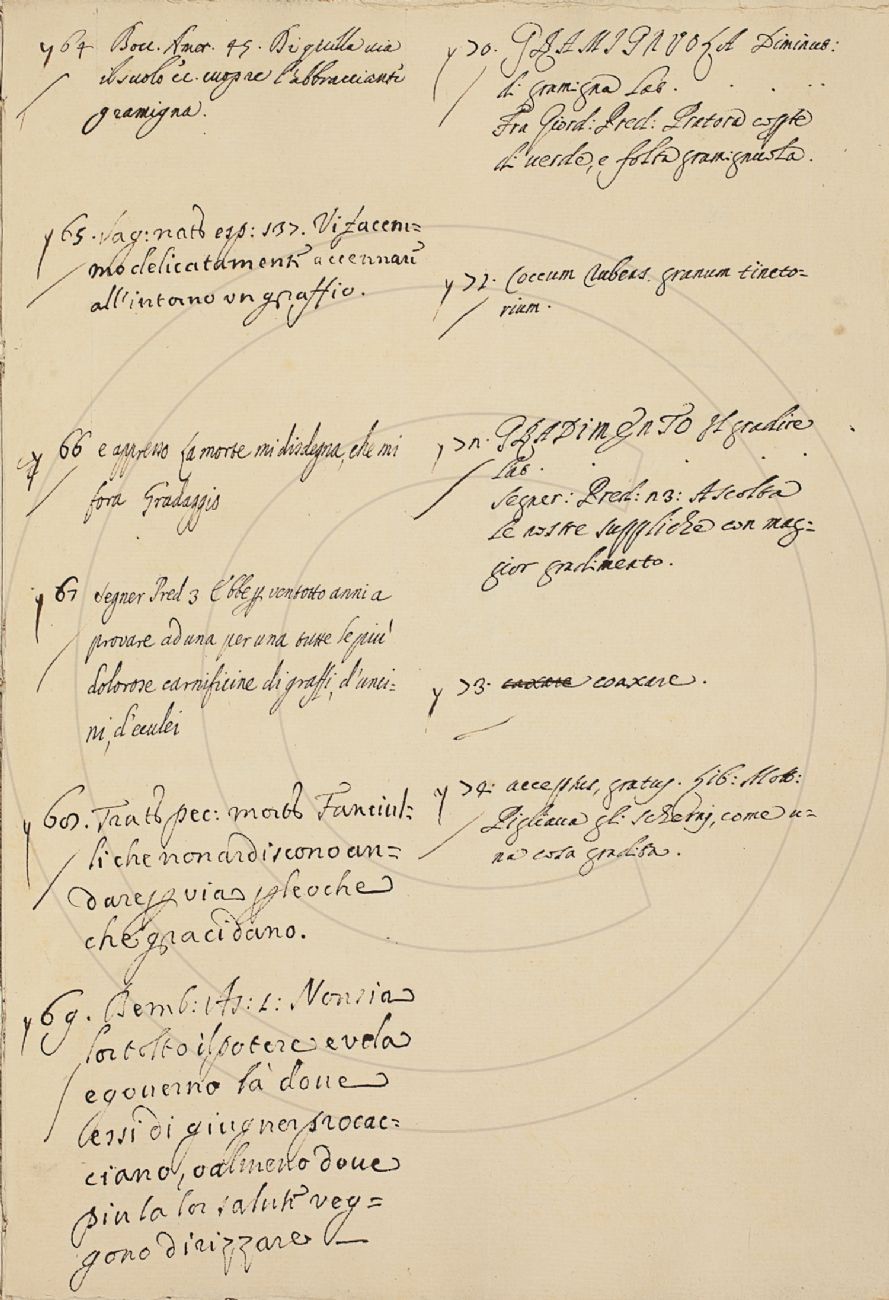 y 64 Bocc. Amor. 45. Di quella via
il suolo è cuopre l'abbracciante
gramigna.
y 65. Sag: nat esp: 137. Vi facem=
mo delicatamente accennare
all'intorno un graffio.
y 66 e appresso La morte mi disdegna, che mi
fora Gradaggio
y 67 Segner Pred 3 ventotto anni a
provare ad una per una tutte le più
dolorose carnificine di graffi, d'unci=
ni, d'eculei
y 68. Tratt pec: mort Fanciul=
li che non ardiscono an=
dare p via ploche
che gracidano.
y 69. Bemb: As: 1: Non sia
lor tolto il potere e vela
e governo là doue
essi di giugner procac=
ciano, o almeno doue
piu la lor salute veg=
gono dirizzare —
y 70. GRAMIGNUOLA Diminut:
di gramigna Lat.
Fra Giord: Pred: Pratora coperte
di verde, e folta gramignuola.
y 71. Coccum rubens granum tincto=
rium.
y 72. GRADIMENTO Il gradire
Lat.
Segner: Pred: 23: Ascolta
le nostre suppliche con mag=
gior gradimento.
y 73. coaxare.
y 74. acceptus, gratus. Lib: Mott:
Pigliava gli scherni, come u=
na cosa gradita.